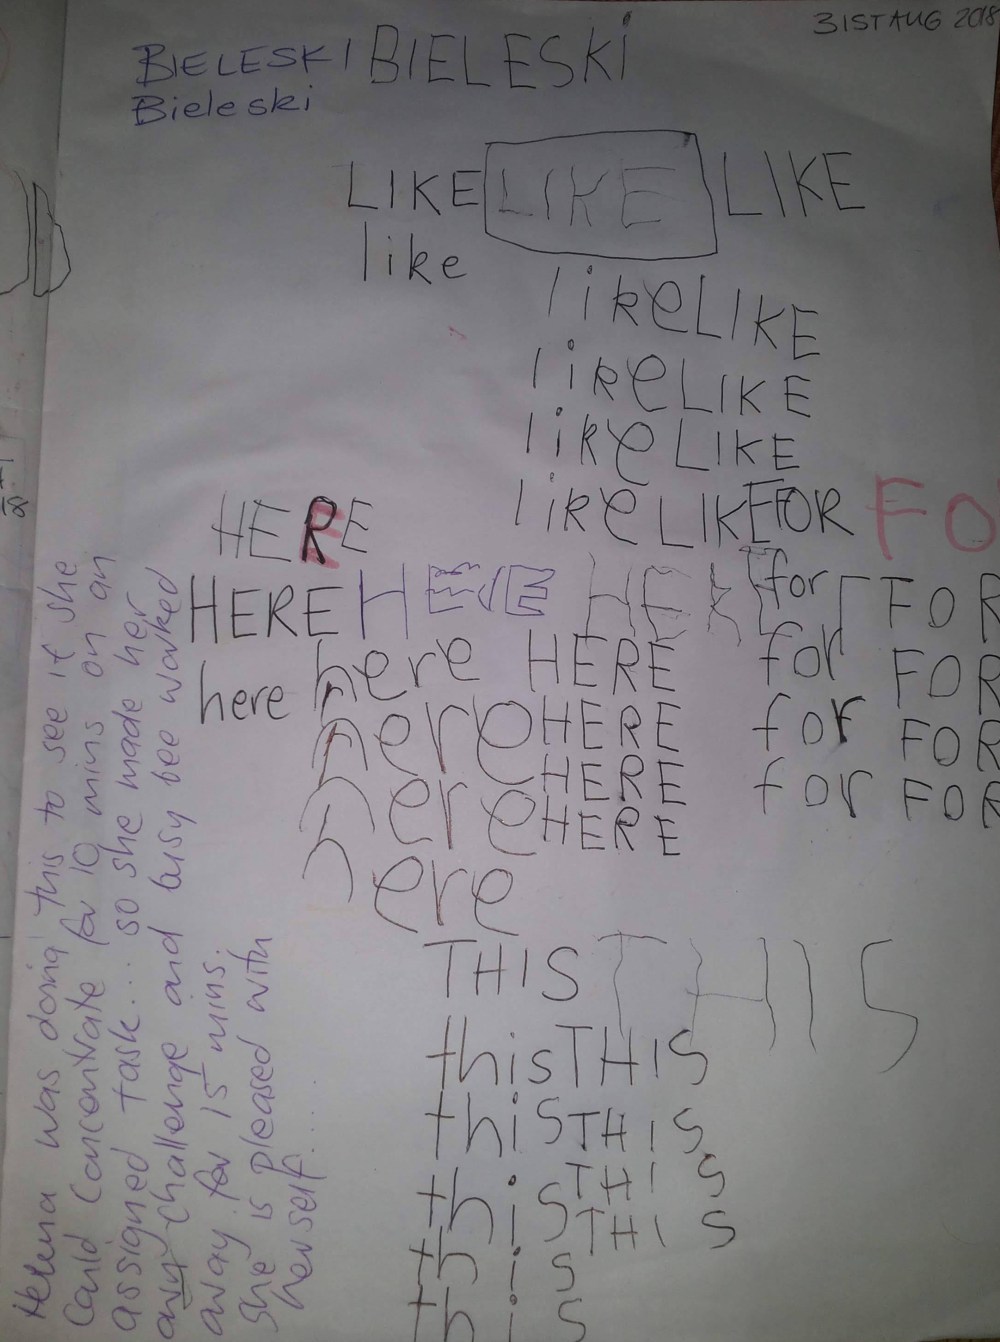 31ST AUG 2018
BIELESKI BIELESKi
Bieleski
LIKE LIKE LIKE
like
like LIKE
like LIKE
like LIKE
like LIKE FOR FO
HERE
HERE HERE HER
for FOR
here here HERE for FOR
here HERE for FOR
HERE for FOR
here HERE
here
THIS THIS
this THIS
this THIS
THIS
this THIS
this
this
Helena was doing this to see if she
could concentrate for 10 mins on an
assigned task... so she made her
own challenge and busy bee worked
away for 15 mins.
She is pleased with
herself....